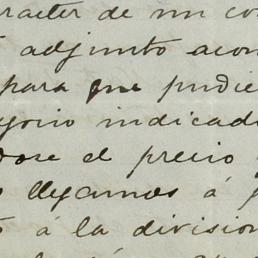 racter de mi co
adjunto acom
para que pudie
gorio indicad
dose el precio
llegamos á
á la division